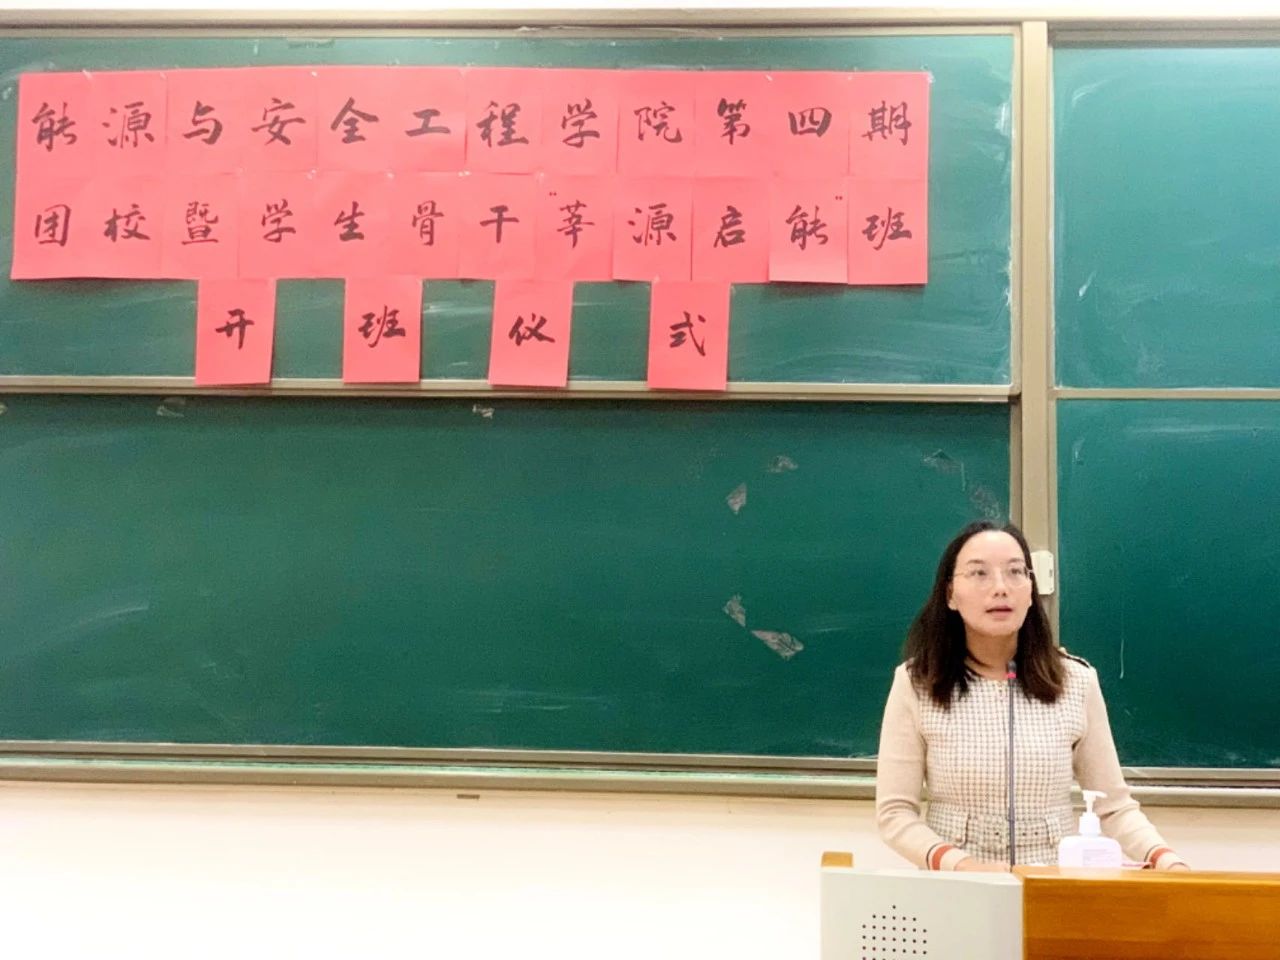 能源与安全工程学院第四期
团校暨学生骨干“莘源启能”班
开班仪式